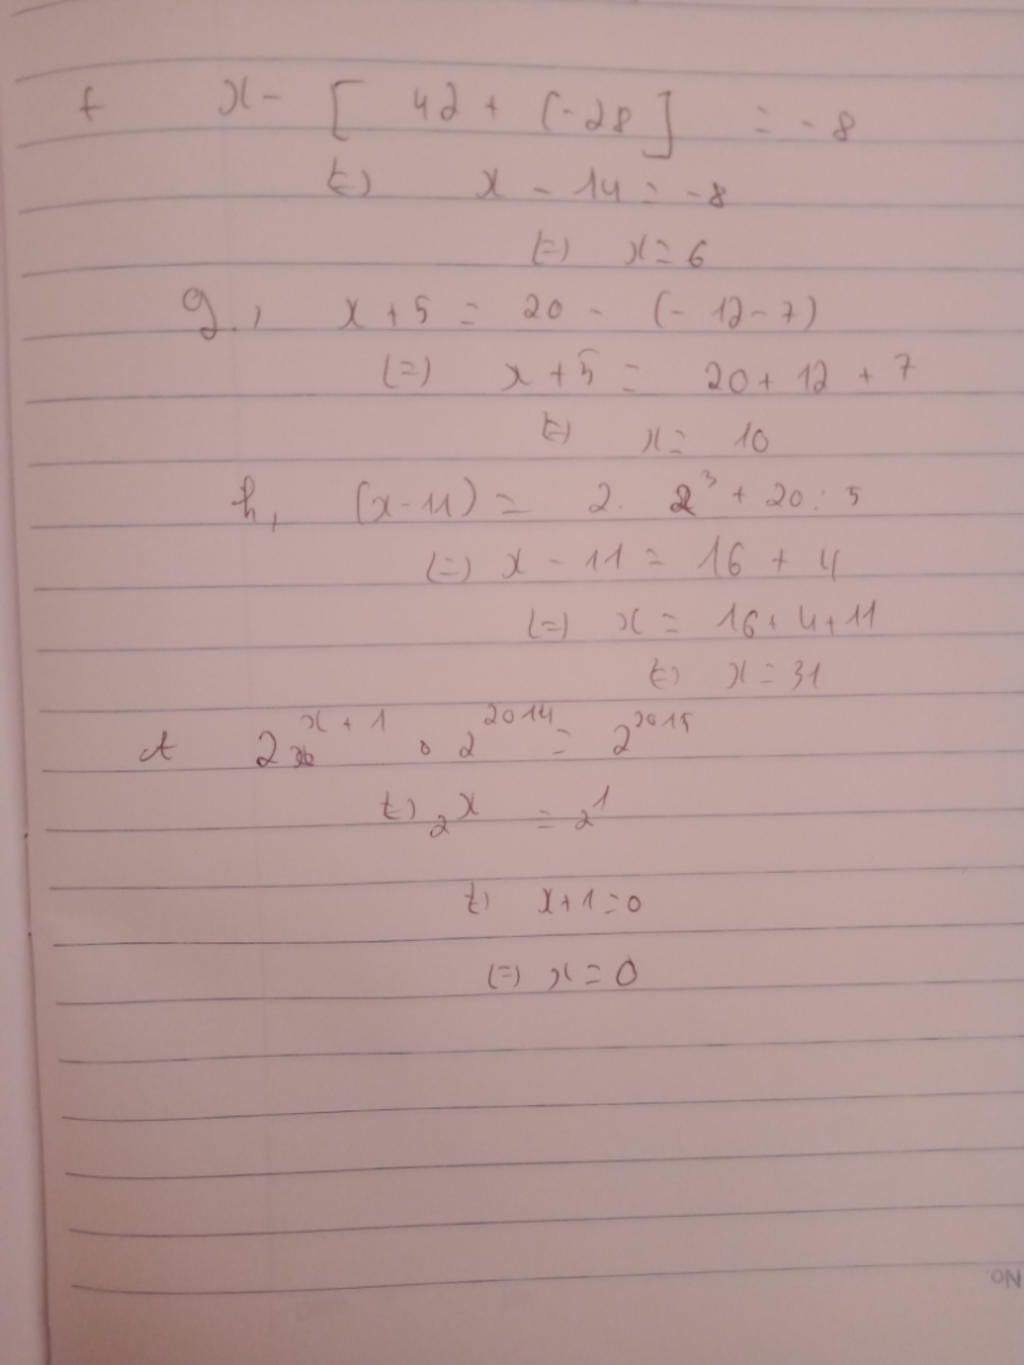 f x - [ 42 + (-28 ] = -8
(=) x - 14 = -8
(=) x = 6
g., x + 5 = 20 - (- 12 - 7)
(=) x + 5 = 20 + 12 + 7
(=) x = 10
h, (x - 11) = 2. 2³ + 20 : 5
(=) x - 11 = 16 + 4
(=) x = 16 + 4 + 11
(=) x = 31
2^{x + 1} . 2^{2014} = 2^{2015}
(=) 2^x = 2^1
(=) x + 1 = 0
(=) x = 0
No.